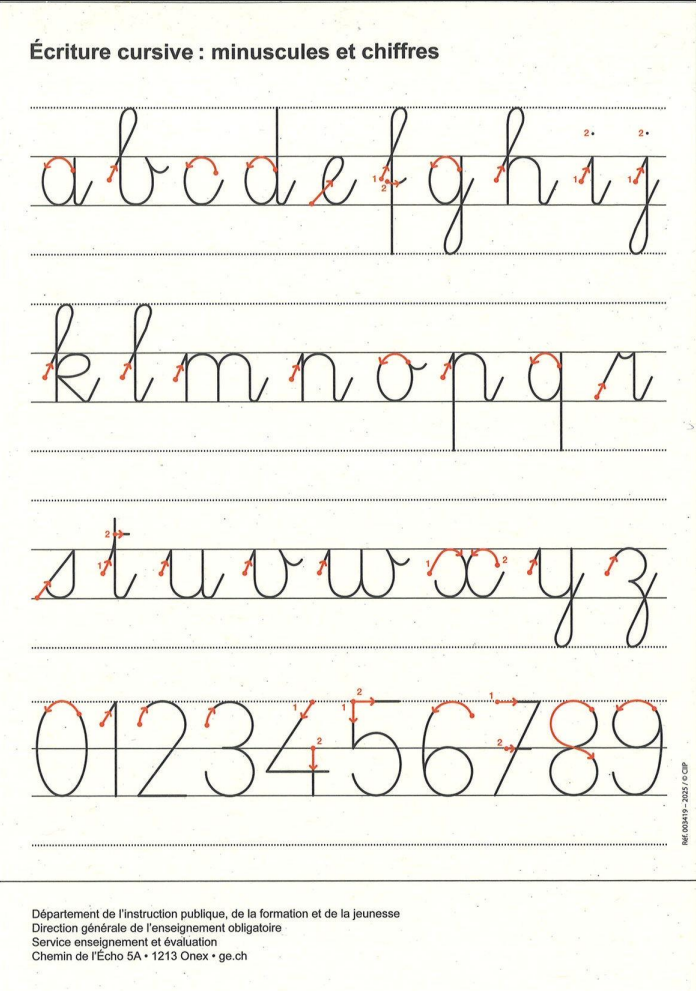 Écriture cursive : minuscules et chiffres
a b c d e f g h i j
k l m n o p q r
s t u v w x y z
0 1 2 3 4 5 6 7 8 9
Réf. 003419 – 2025 / © CIIP
Département de l'instruction publique, de la formation et de la jeunesse
Direction générale de l'enseignement obligatoire
Service enseignement et évaluation
Chemin de l'Écho 5A • 1213 Onex • ge.ch